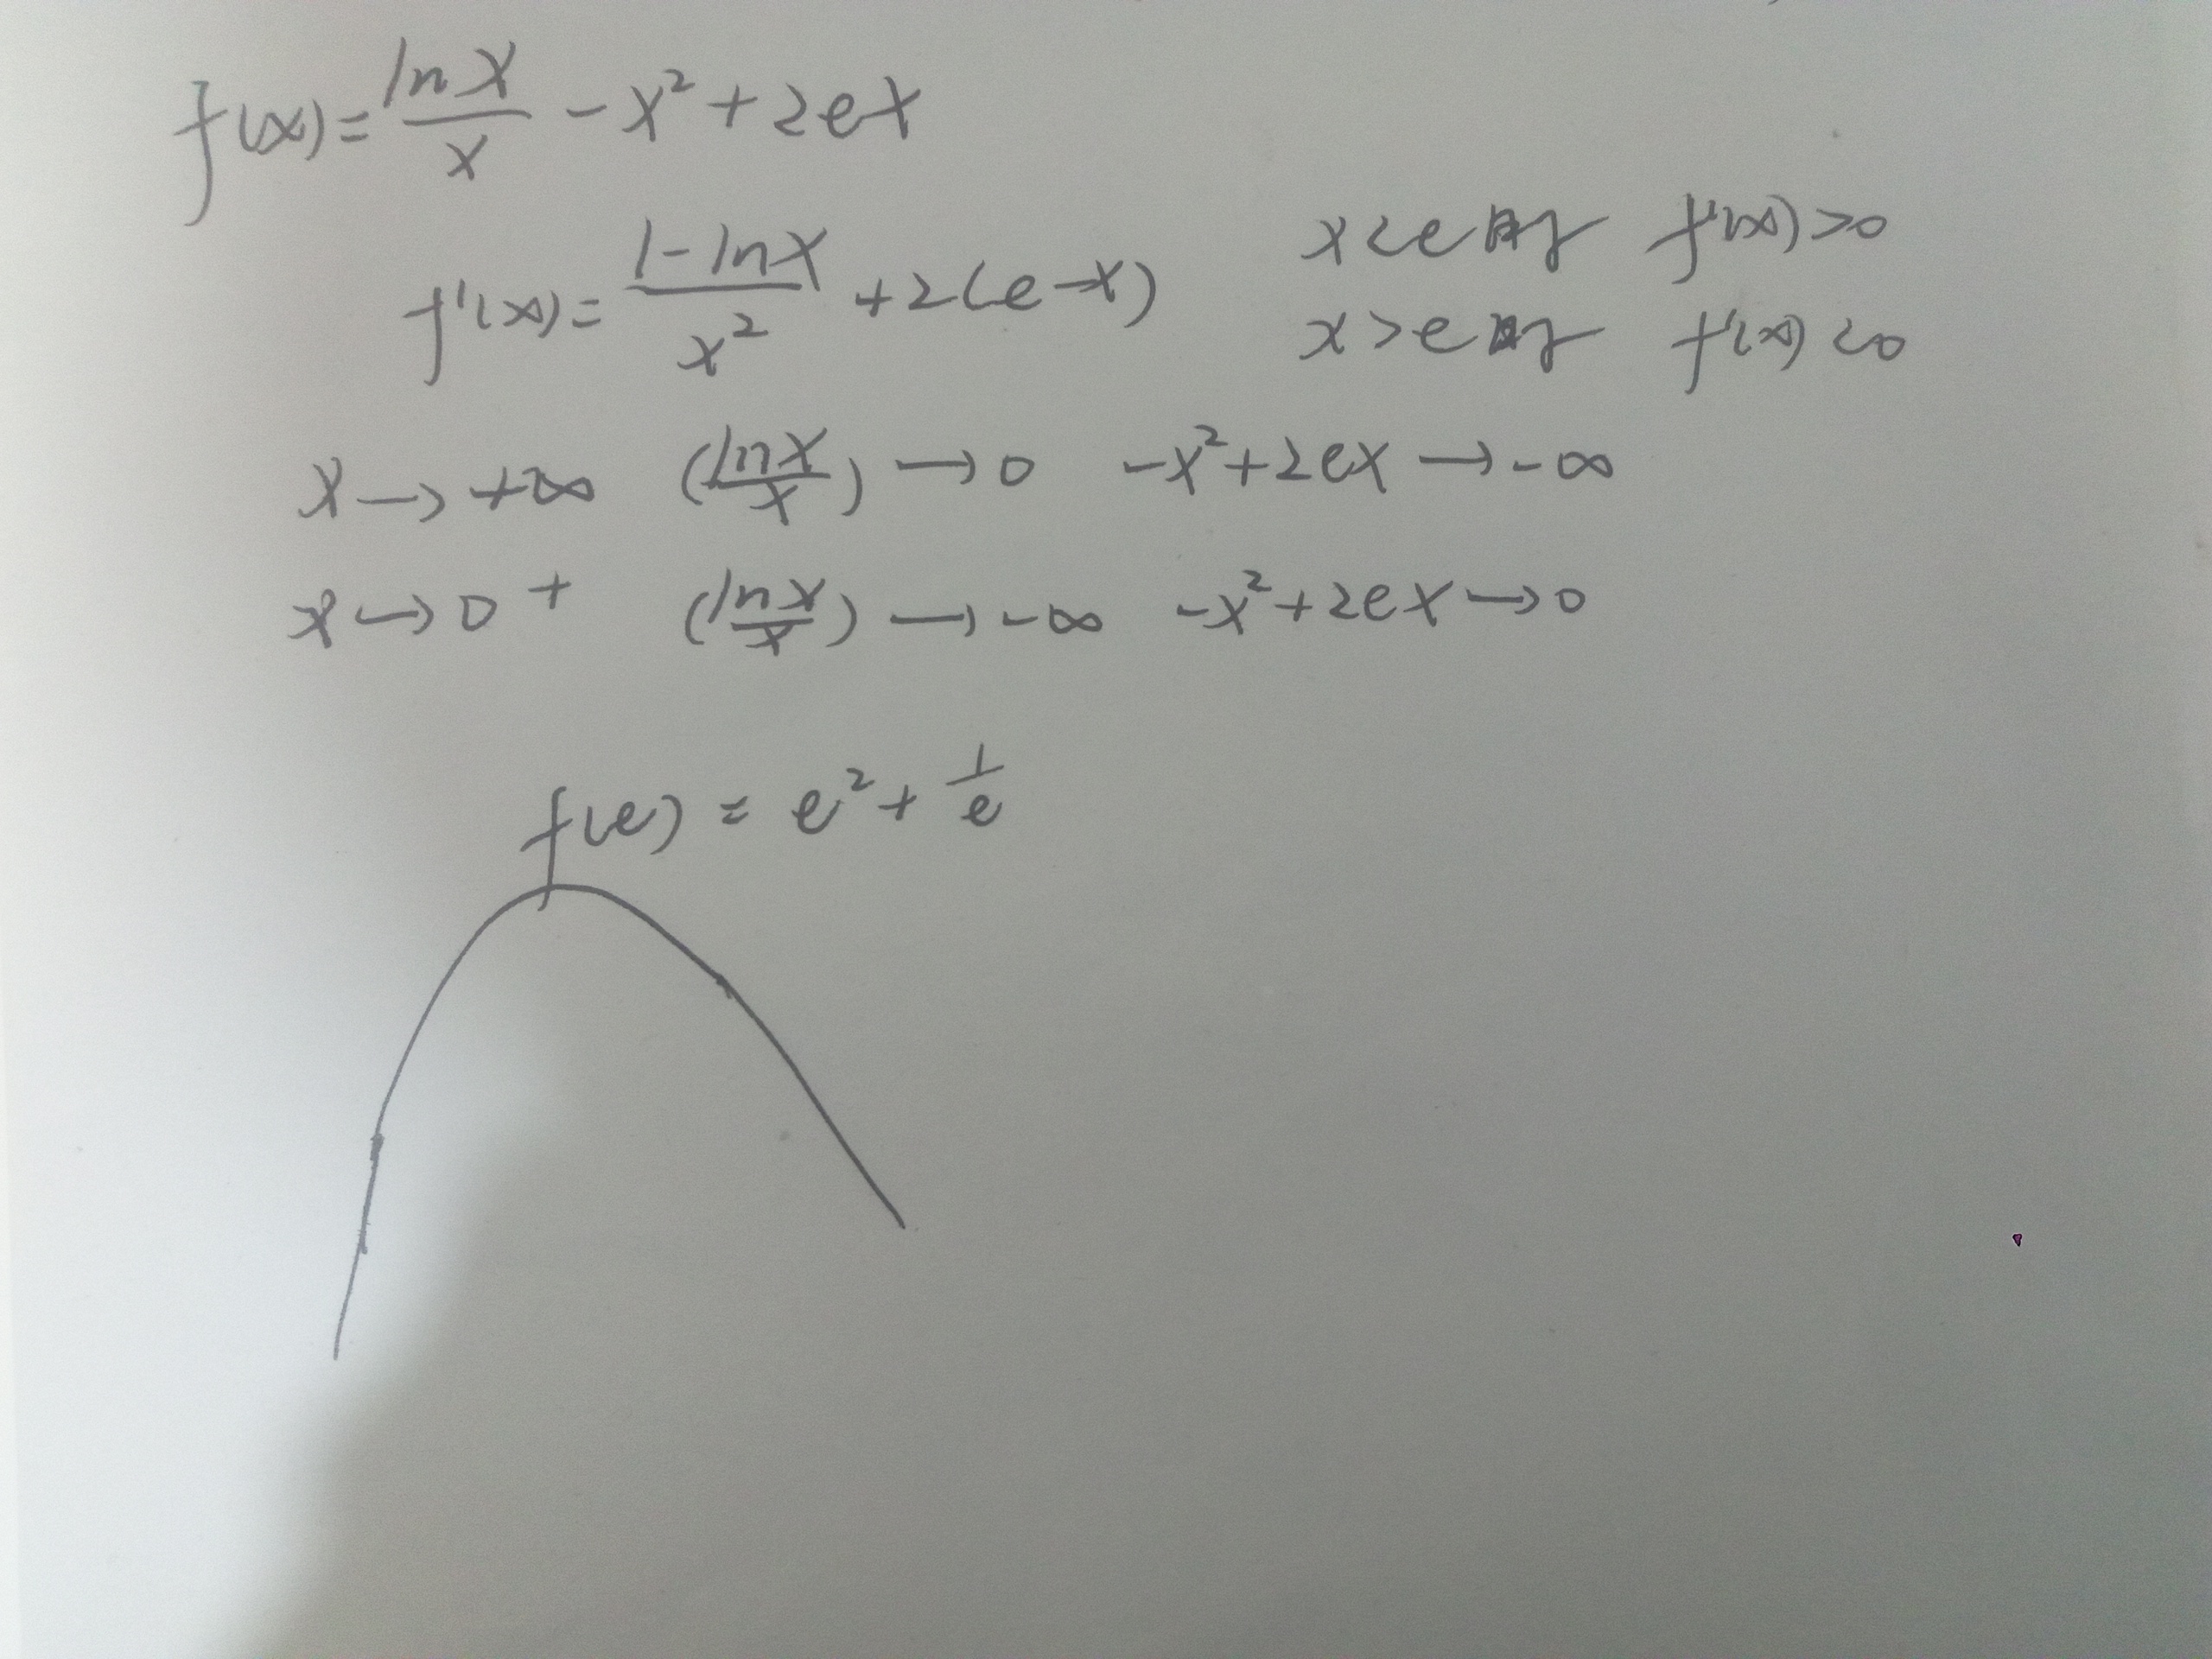 f(x)=lnx/x -x²+2ex
f'(x)=1-lnx/x² +2(e-x)
x<e时 f'(x)>0
x>e时 f'(x)<0
x→+∞ (lnx/x)→0 -x²+2ex→-∞
x→0+ (lnx/x)→-∞ -x²+2ex→0
f(e)=e²+1/e